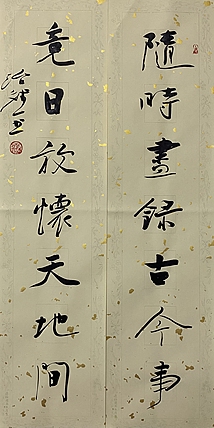 隨時盡録古今事
竟日放懷天地間